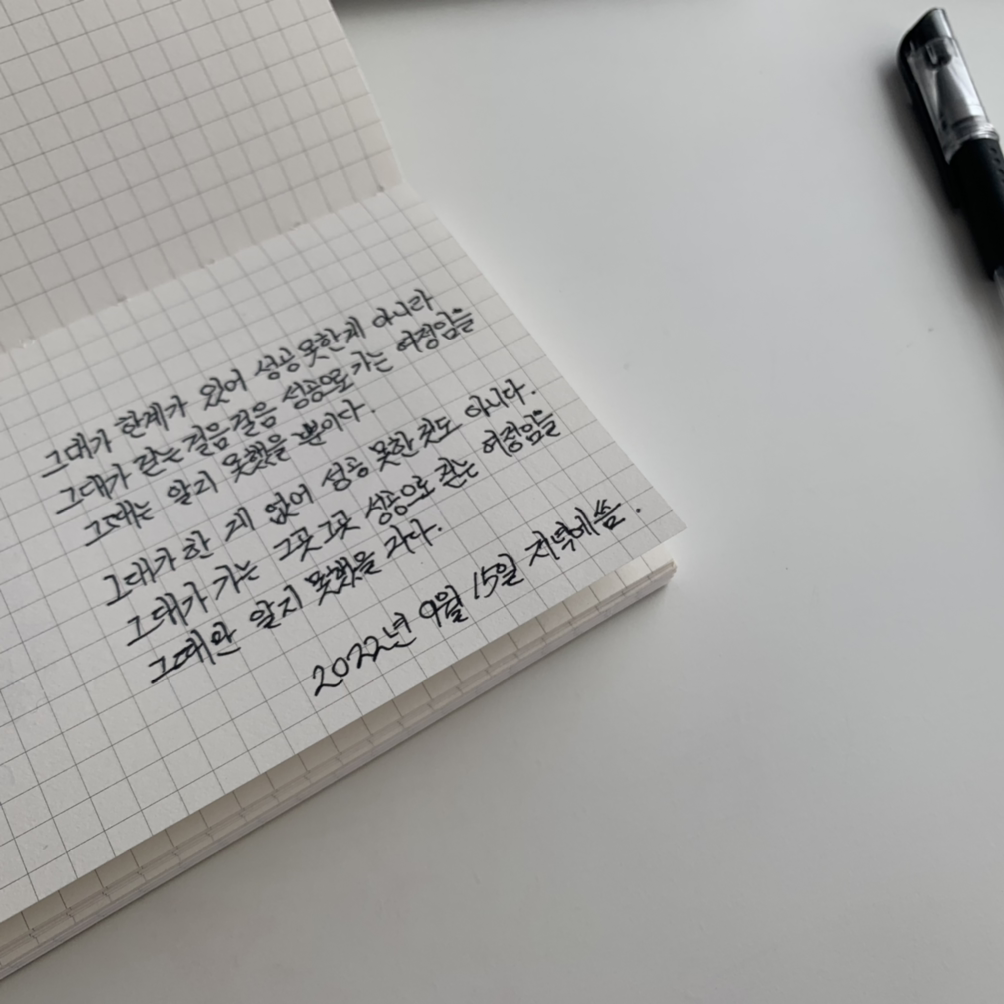 그대가 한계가 있어 성공 못한게 아니라
그대가 걷는 걸음걸음 성공으로 가는 여정임을
그대는 알지 못했을 뿐이다.
그대가 한 게 없어 성공 못한 것도 아니다.
그대가 가는 그곳 그곳 성공으로 걷는 여정임을
그대만 알지 못했을 거다.
2022년 9월 15일 저녁에 씀.